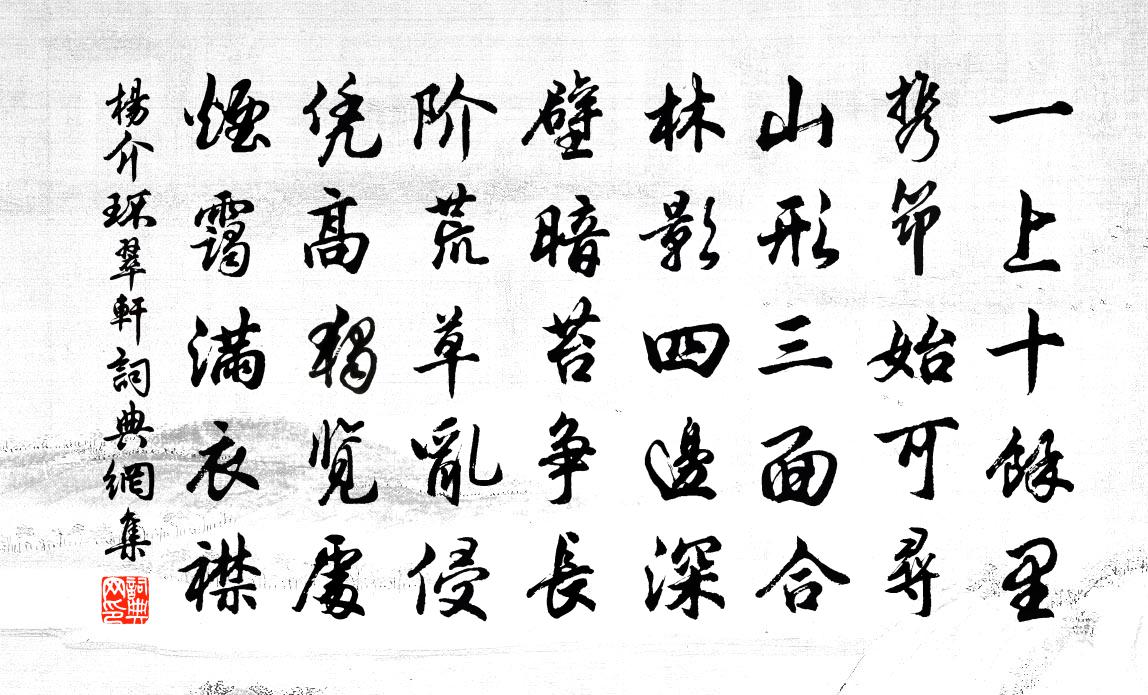 一上十餘里
携筇始可尋
山形三面合
林影四邊深
壁暗苔争長
阶荒草亂侵
凭高獨览處
煙靄满衣襟
楊介琢翠軒詞典網集
詞典网印